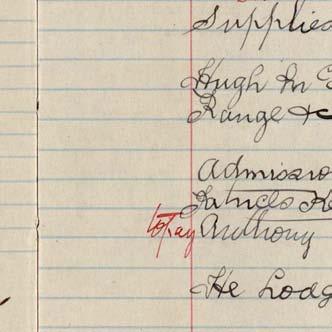 Supplies
Hugh M
Range &
Admissio
Patrick
to pay Anthony
He Lodg